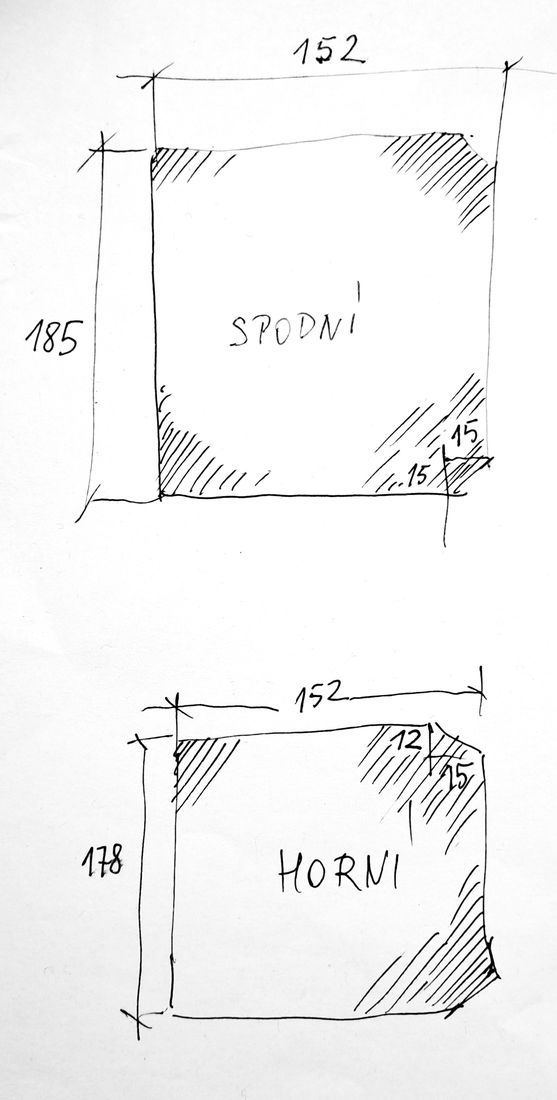 152
185
SPODNÍ
15
15
152
12
15
178
HORNÍ